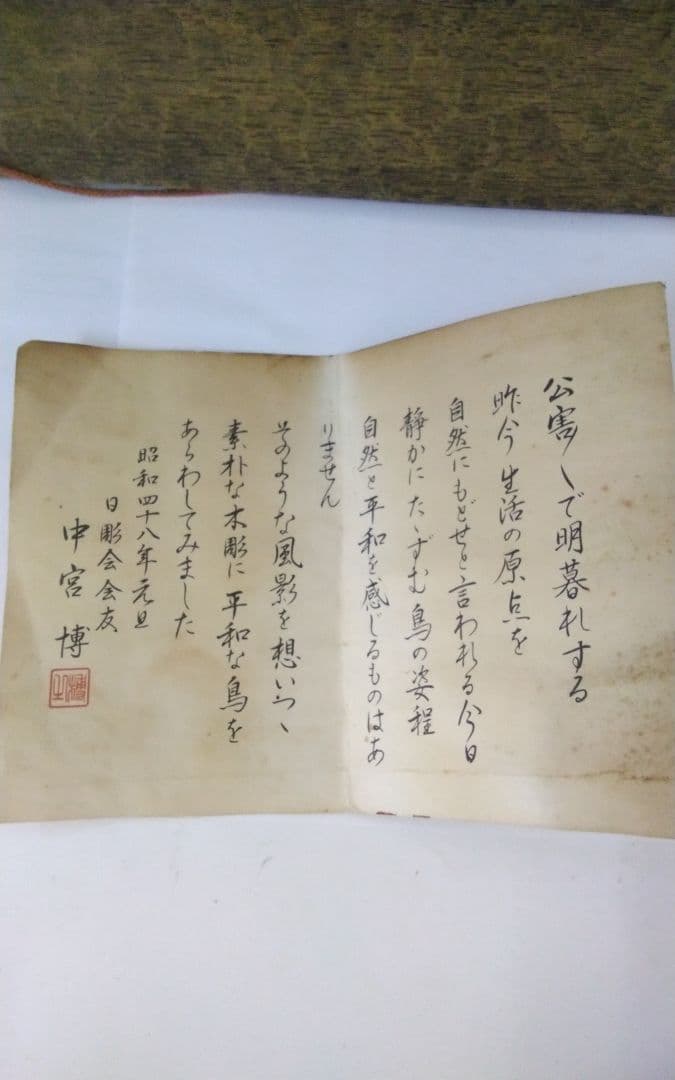 公害〱で明暮れする
昨今生活の原点を
自然にもどせと言われる今日
静かにたゝずむ鳥の姿程
自然と平和を感じるものはあ
りません
そのような風影を想いつゝ
素朴な木彫に平和な鳥を
あらわしてみました
昭和四十八年元旦
日彫会会友
中宮博